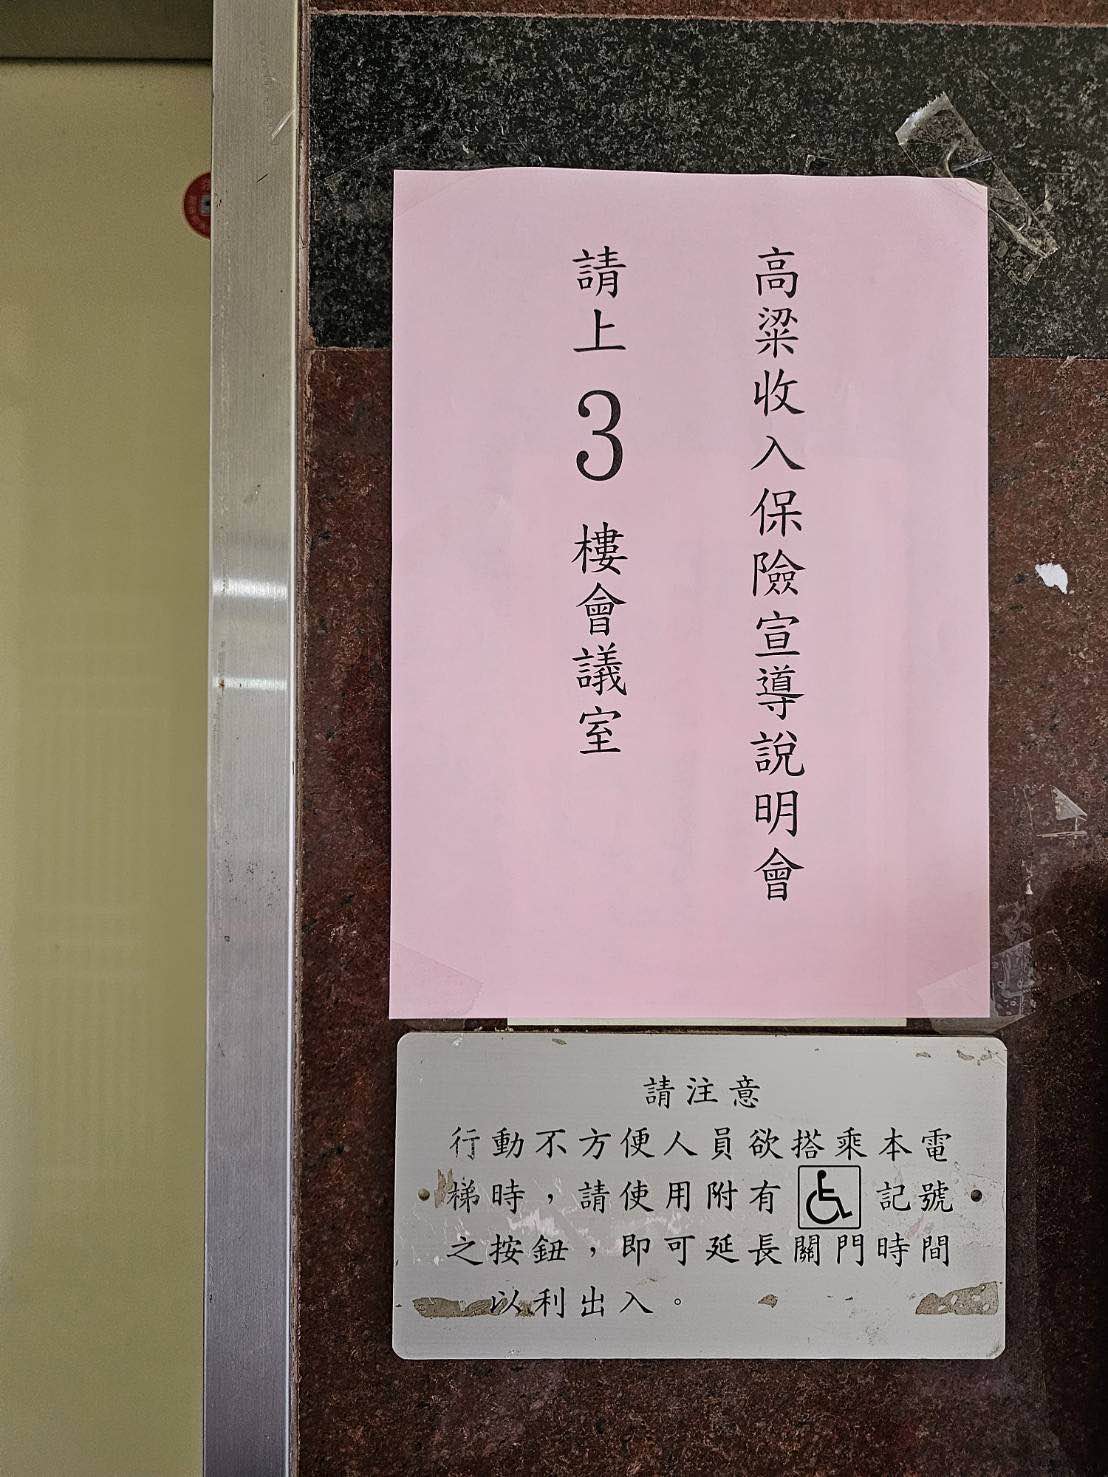 高粱收入保險宣導說明會
請上3樓會議室
請注意
行動不方便人員欲搭乘本電
梯時，請使用附有 記號
之按鈕，即可延長關門時間
以利出入。